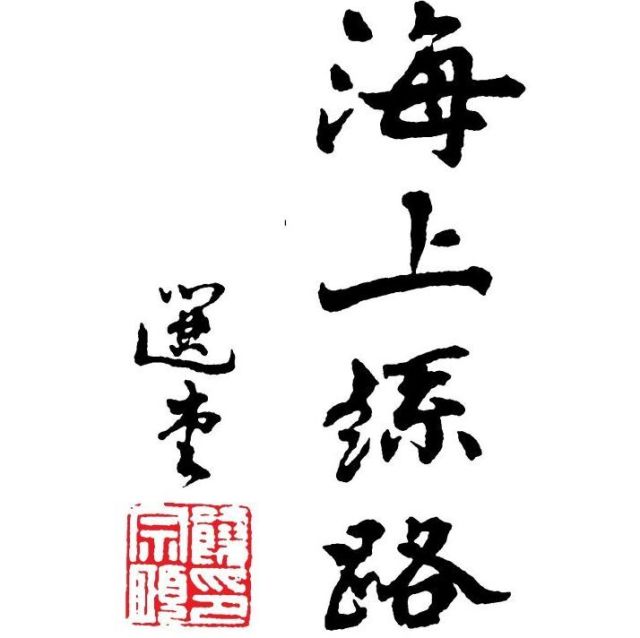 海上絲路
選堂
饒宗頤印